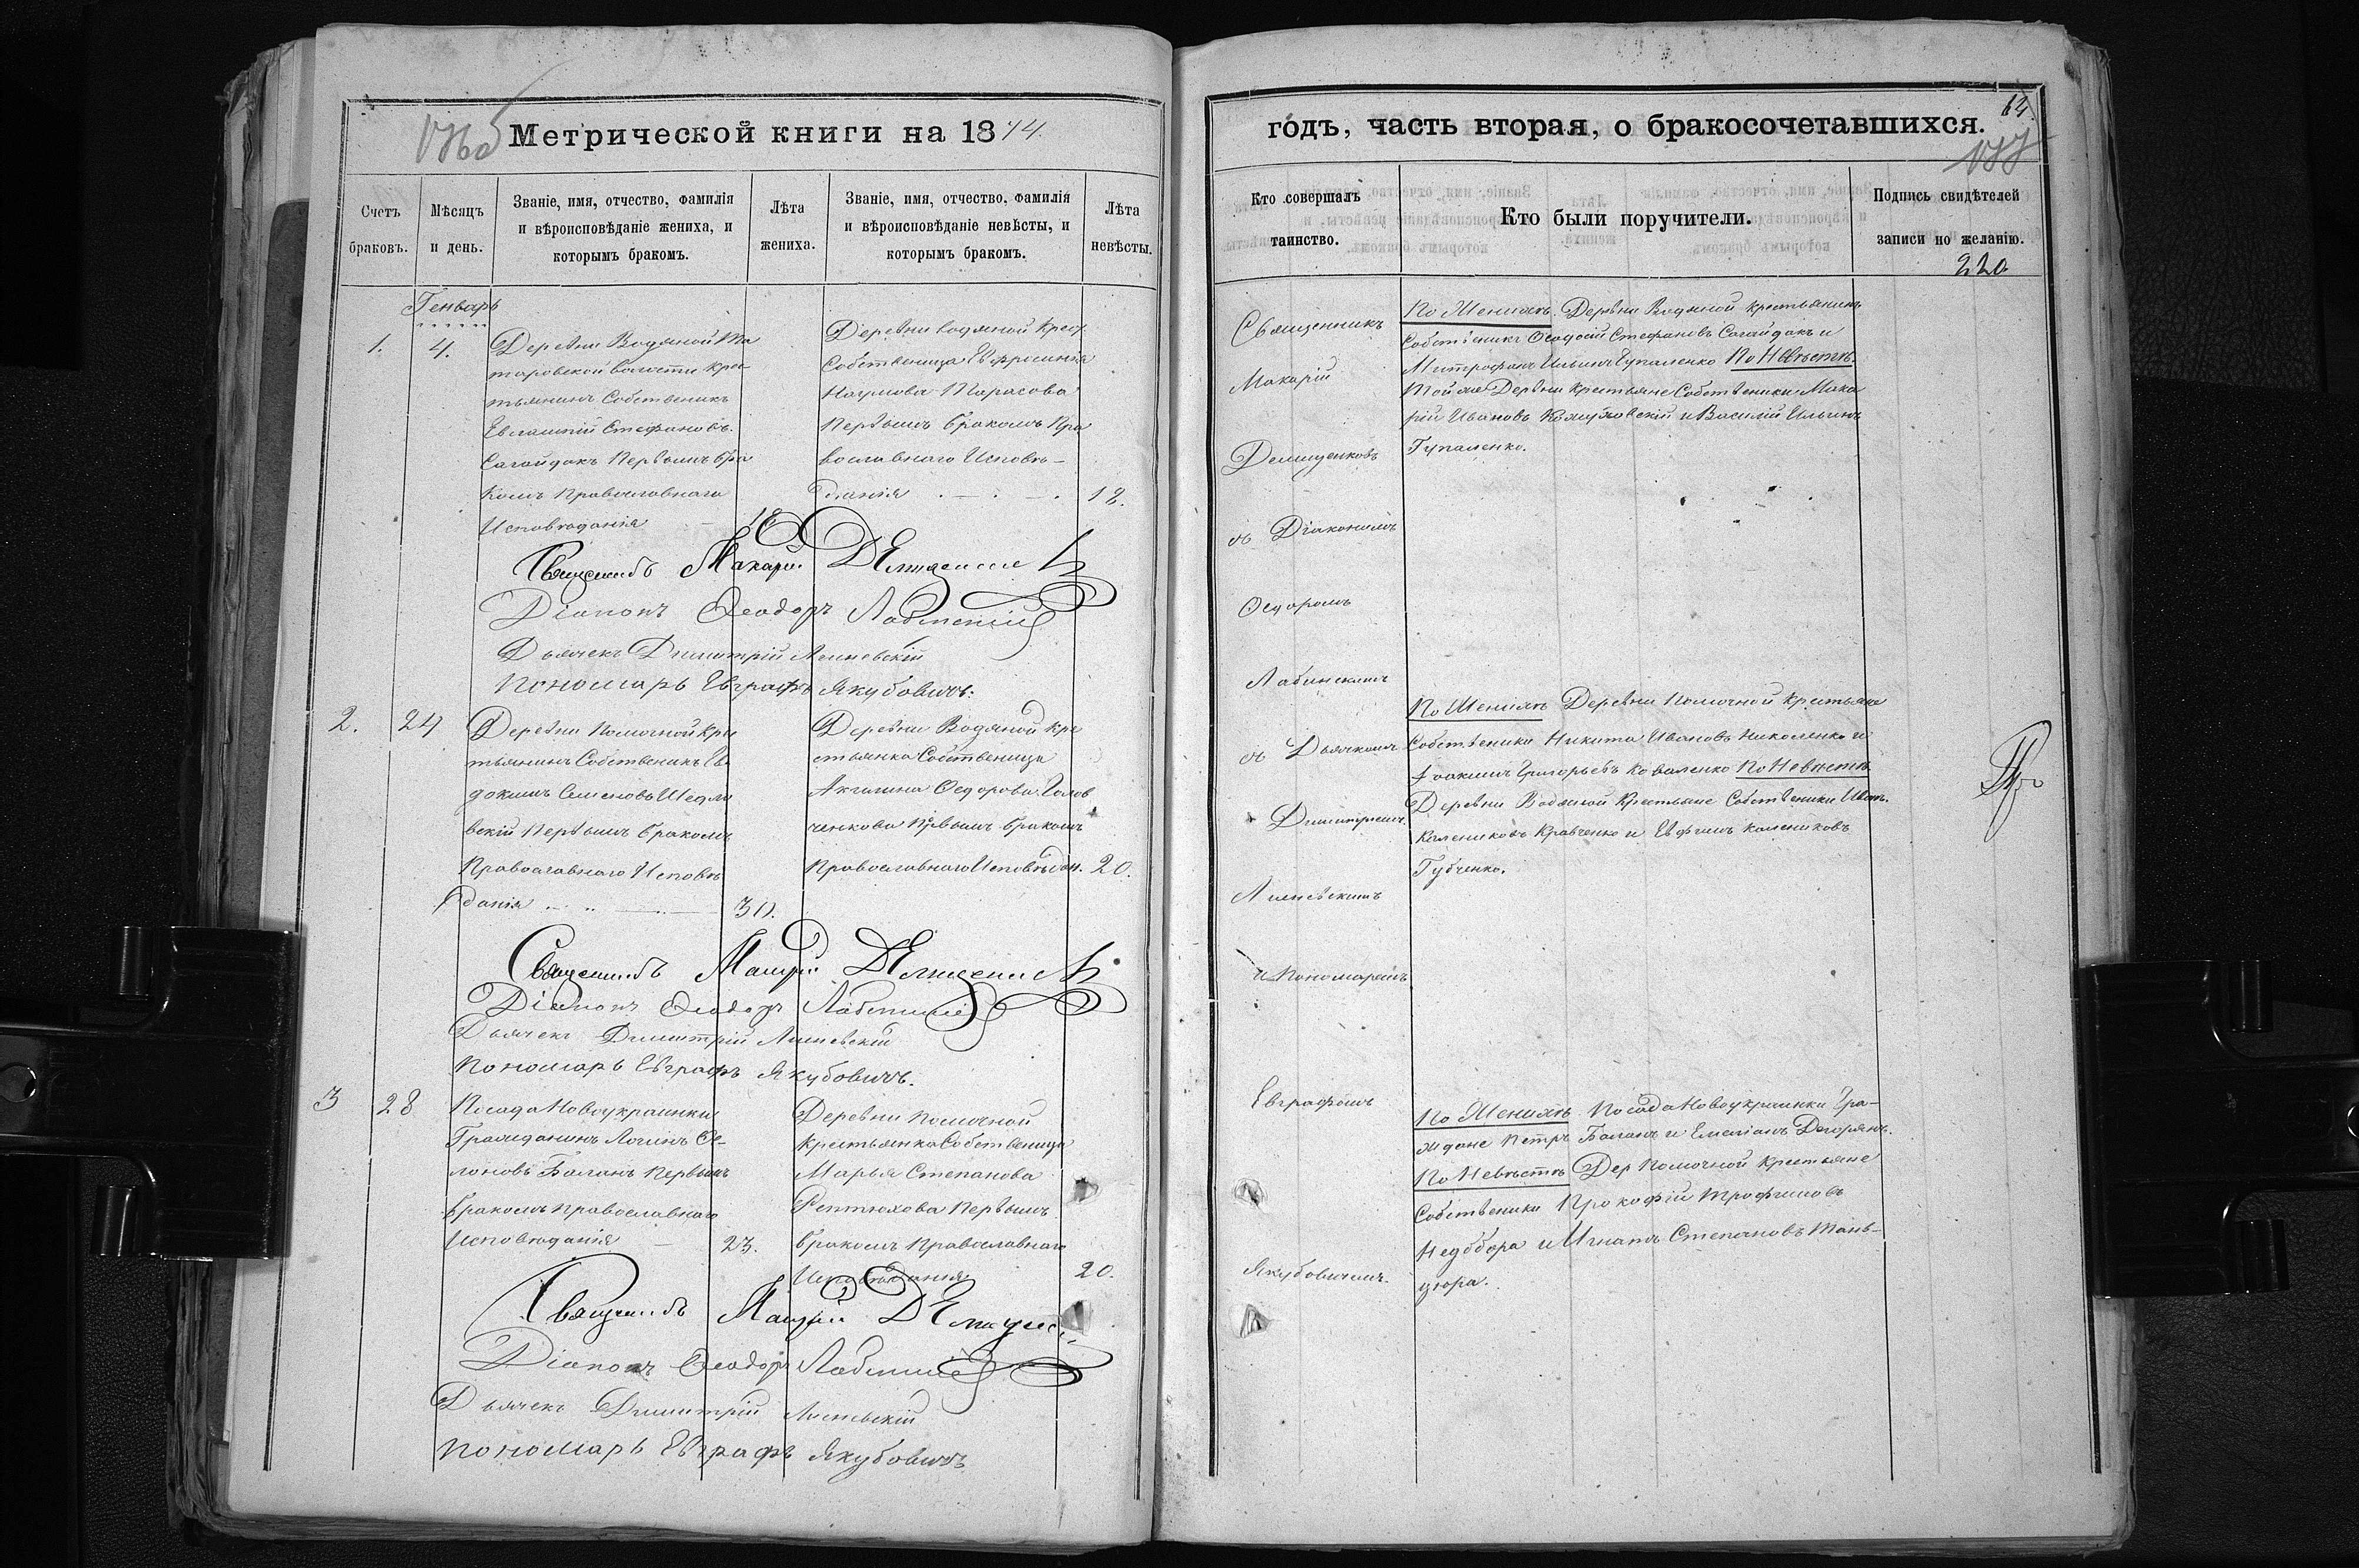 Метрической книги на 1874.
Счетъ браковъ.
Мѣсяцъ и день.
Званіе, имя, отчество, фамилія и вѣроисповѣданіе жениха, и которымъ бракомъ.
Лѣта жениха.
Званіе, имя, отчество, фамилія и вѣроисповѣданіе невѣсты, и которымъ бракомъ.
Лѣта невѣсты.
Генварь
1.
4.
Деревни Водяной
волости крес-
тьянинъ Собственикъ
Евлампій Стефановъ
Сагайдакъ Первымъ бра
комъ Православнаго
Исповѣданія
Деревни водяной крест.
Собственица Евфросинія
Наумова Тарасова
Первымъ бракомъ Пра
вославнаго Исповѣ-
данія
18.
Священникъ Макарій
Діаконъ Ѳеодоръ Лабинскій
Дьячекъ Димитрій
Пономарь Евграфъ Якубовичъ.
2.
24
Деревни Помочной Крес
тьянинъ Собственикъ Ев
докимъ Семеновъ
Первымъ бракомъ
Православнаго Исповѣ
данія
30.
Деревни Водяной Кре
стьянка Собственица
Акилина Ѳедорова Голов
ченкова Первымъ бракомъ
Православнаго Исповѣдан.
20.
Священникъ Макарій
Діаконъ Ѳеодоръ Лабинскій
Дьячекъ Димитрій
Пономарь Евграфъ Якубовичъ.
3
28
Посада Новоукраинки
Гражданинъ
Баланъ Первымъ
бракомъ Православнаго
Исповѣданія
23.
Деревни Помочной
Крестьянка Собственица
Марья Степанова
Рептюхова Первымъ
бракомъ Православнаго
Исповѣданія
20.
Священникъ Макарій
Діаконъ Ѳеодоръ Лабинскій
Дьячекъ Димитрій
Пономарь Евграфъ Якубовичъ
годъ, часть вторая, о бракосочетавшихся.
Кто совершалъ таинство.
Кто были поручители.
Подпись свидѣтелей записи по желанію.
220
Священникъ
Макарій
съ Діакономъ
Ѳедоромъ
Лабинскимъ
съ Дьячкомъ
Димитріемъ
и Пономаремъ
Евграфомъ
Якубовичемъ.
По Женихѣ. Деревни Водяной крестьянинъ
Собственикъ Ѳеодосій Стефановъ Сагайдакъ и
Митрофанъ Ильинъ Гупаленко По Невѣстѣ.
Той же Деревни Крестьяне Собственики Мака
рій Ивановъ и Василій Ильинъ
Гупаленко.
По Женихѣ Деревни Помочной Крестьяне
Собственики Никита Ивановъ Николенко и
Іоакимъ Григорьевъ Коваленко По Невѣстѣ
Деревни Водяной Крестьяне Собственики Иванъ
Калениковъ Кравченко и Евфимъ Калениковъ
Губченко.
По Женихѣ Посада Новоукраинки Гра-
ждане Петръ Баланъ и Емеліанъ
По Невѣстѣ Дер Помочной Крестьяне
Собственики Прокофій Трофимовъ
и Игнатъ Степановъ Мань-
цюра.